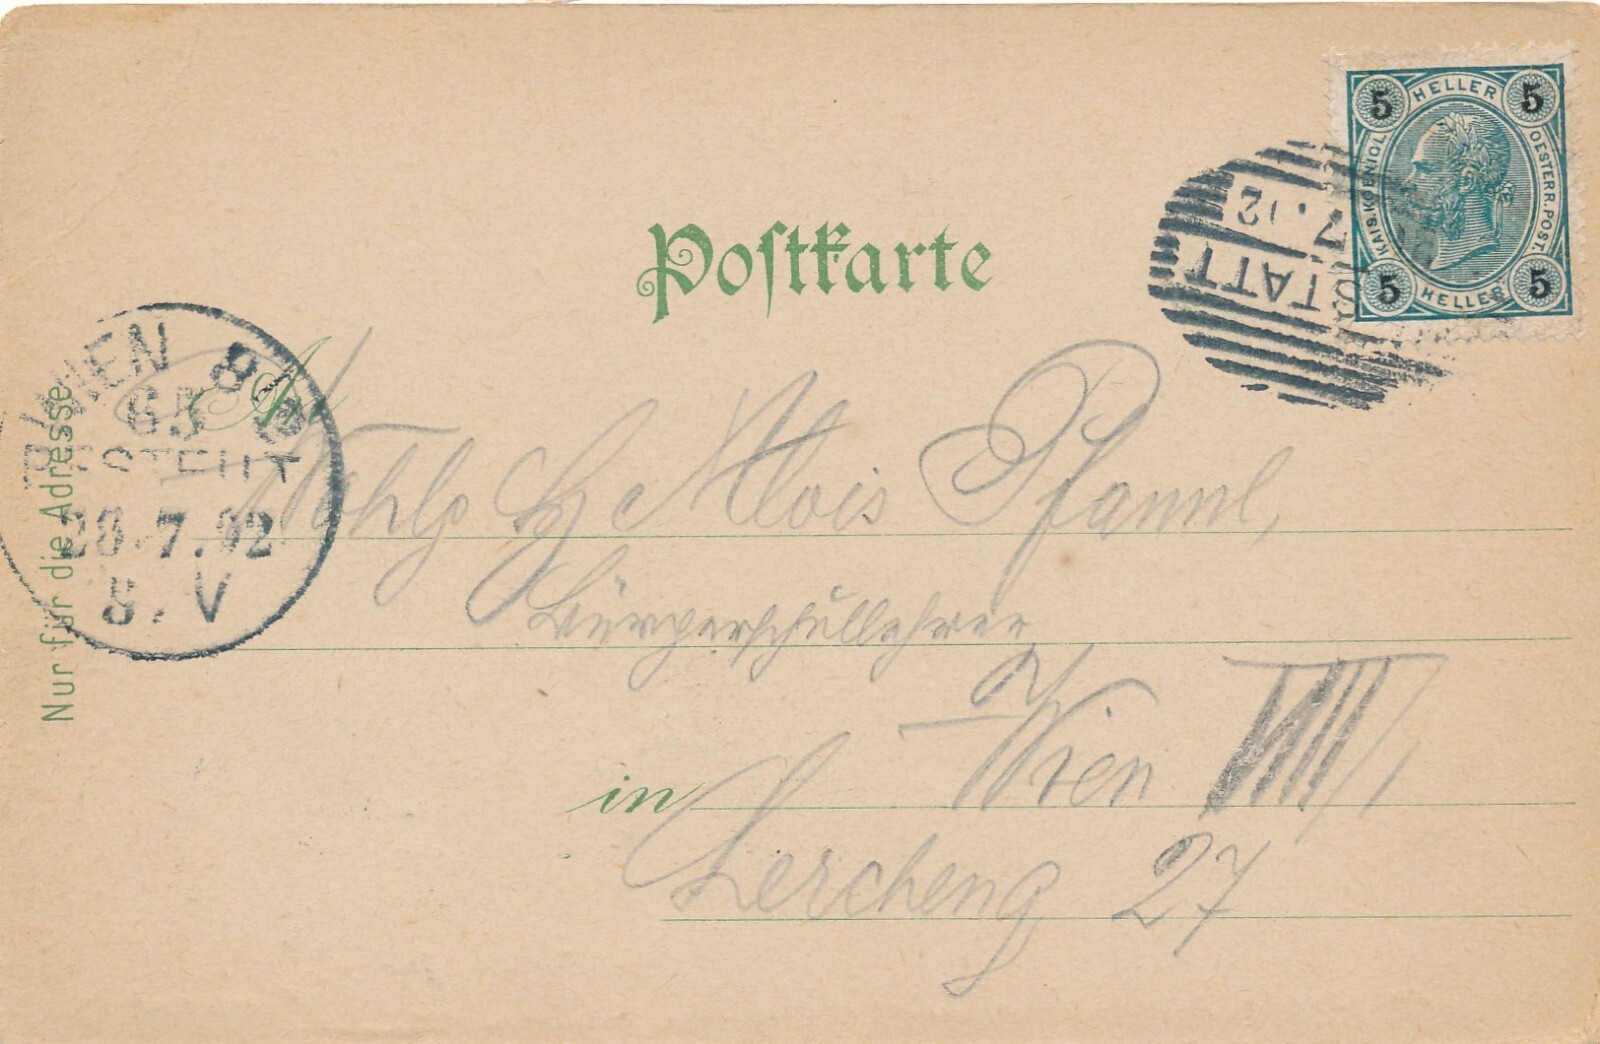 Postkarte
5 HELLER 5
KAIS. KOENIGL. OESTERR. POST.
5 HELLER 5
STATT
7.02
WIEN 8
65
BESTELLT
28.7.02
8.V
Nur für die Adresse.
An
Wohlg H Alois Pfannl,
Bürgerschullehrer
in Wien VIII/1
Lercheng 27